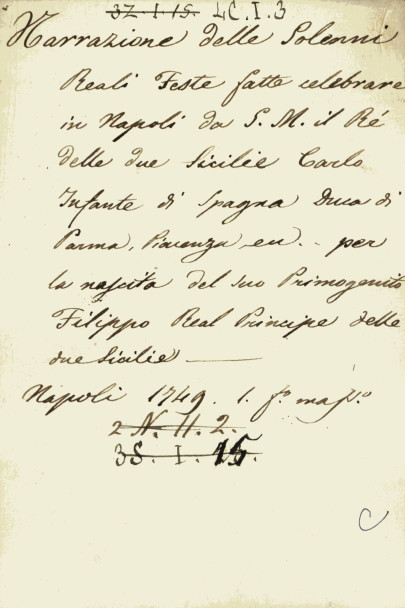 32.I.15. LC.I.3
Narrazione delle Solenni
Reali Feste fatte celebrare
in Napoli da S. M. il Ré
delle due Sicilie Carlo
Infante di Spagna Duca di
Parma, Piacenza eu.. per
la nascita del suo Primogenito
Filippo Real Principe delle
due Sicilie
Napoli 1749. 1. fº masº.
2 N. 11. 2.
3S. I. 15.
C